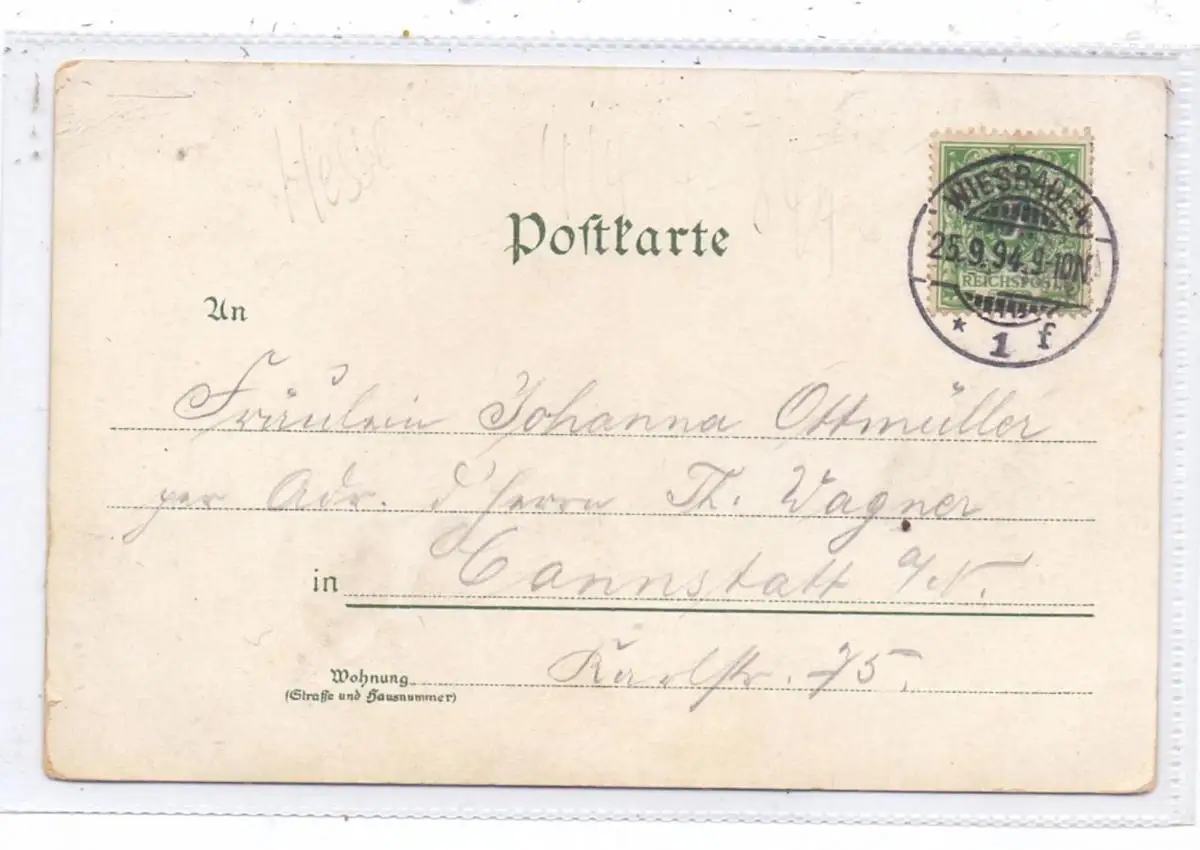 Hesse
Postkarte
WIESBADEN
25.9.94.9-10N.
REICHSPOST
* 1 f
An
Fräulein Johanna Ottmüller
per Adr. d' Herrn Th. Wagner
in Cannstatt a/N.
Wohnung Karlstr. 75.
(Straße und Hausnummer)